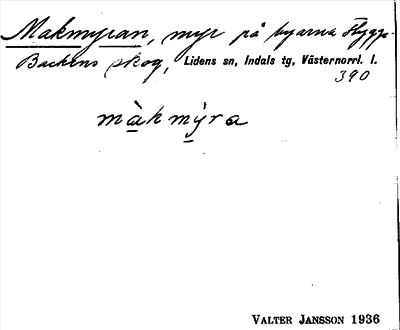 Makmyran, myr på byarna Flygge-
Backens skog, Lidens sn, Indals tg, Västernorrl. l.
390
màkmỳra
VALTER JANSSON 1936